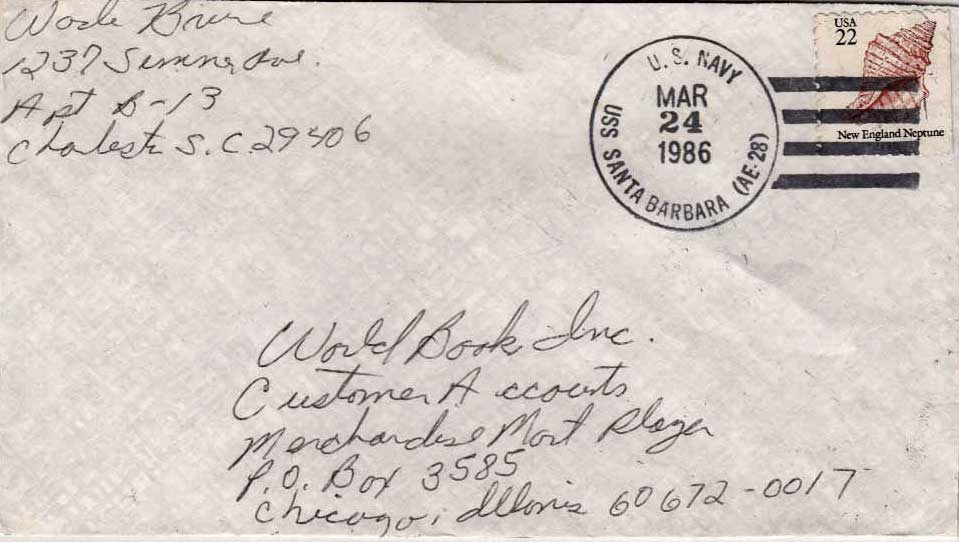 Wade
1237 Ave.
Apt B-13
S.C. 29406
U.S. NAVY
MAR
24
1986
USS SANTA BARBARA (AE-28)
USA
22
New England Neptune
World Book Inc.
Customer Accounts
Merchandise Mart Plaza
P.O. Box 3585
Chicago, Illonis 60672-0017